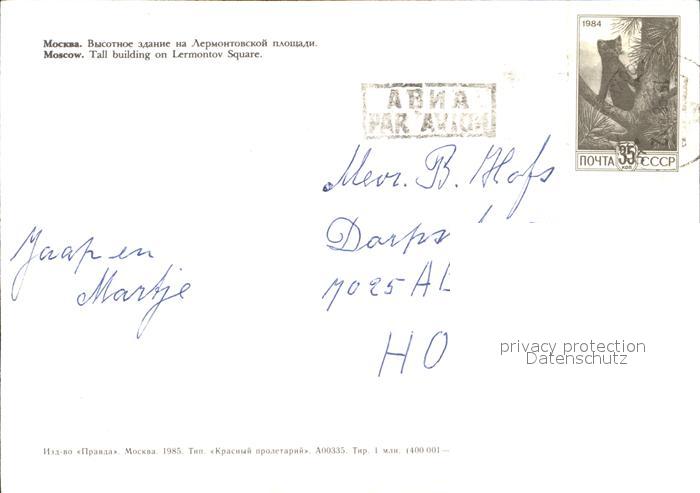 Москва. Высотное здание на Лермонтовской площади.
Moscow. Tall building on Lermontov Square.
1984
АВИА
PAR AVION
ПОЧТА 35 СССР
КОП
Mevr. B. Hofs
7025 AL
HO
Jaap en
Martje
privacy protection
Datenschutz
Изд-во «Правда». Москва. 1985. Тип. «Красный пролетарий». А00335. Тир. 1 млн. (400 001—